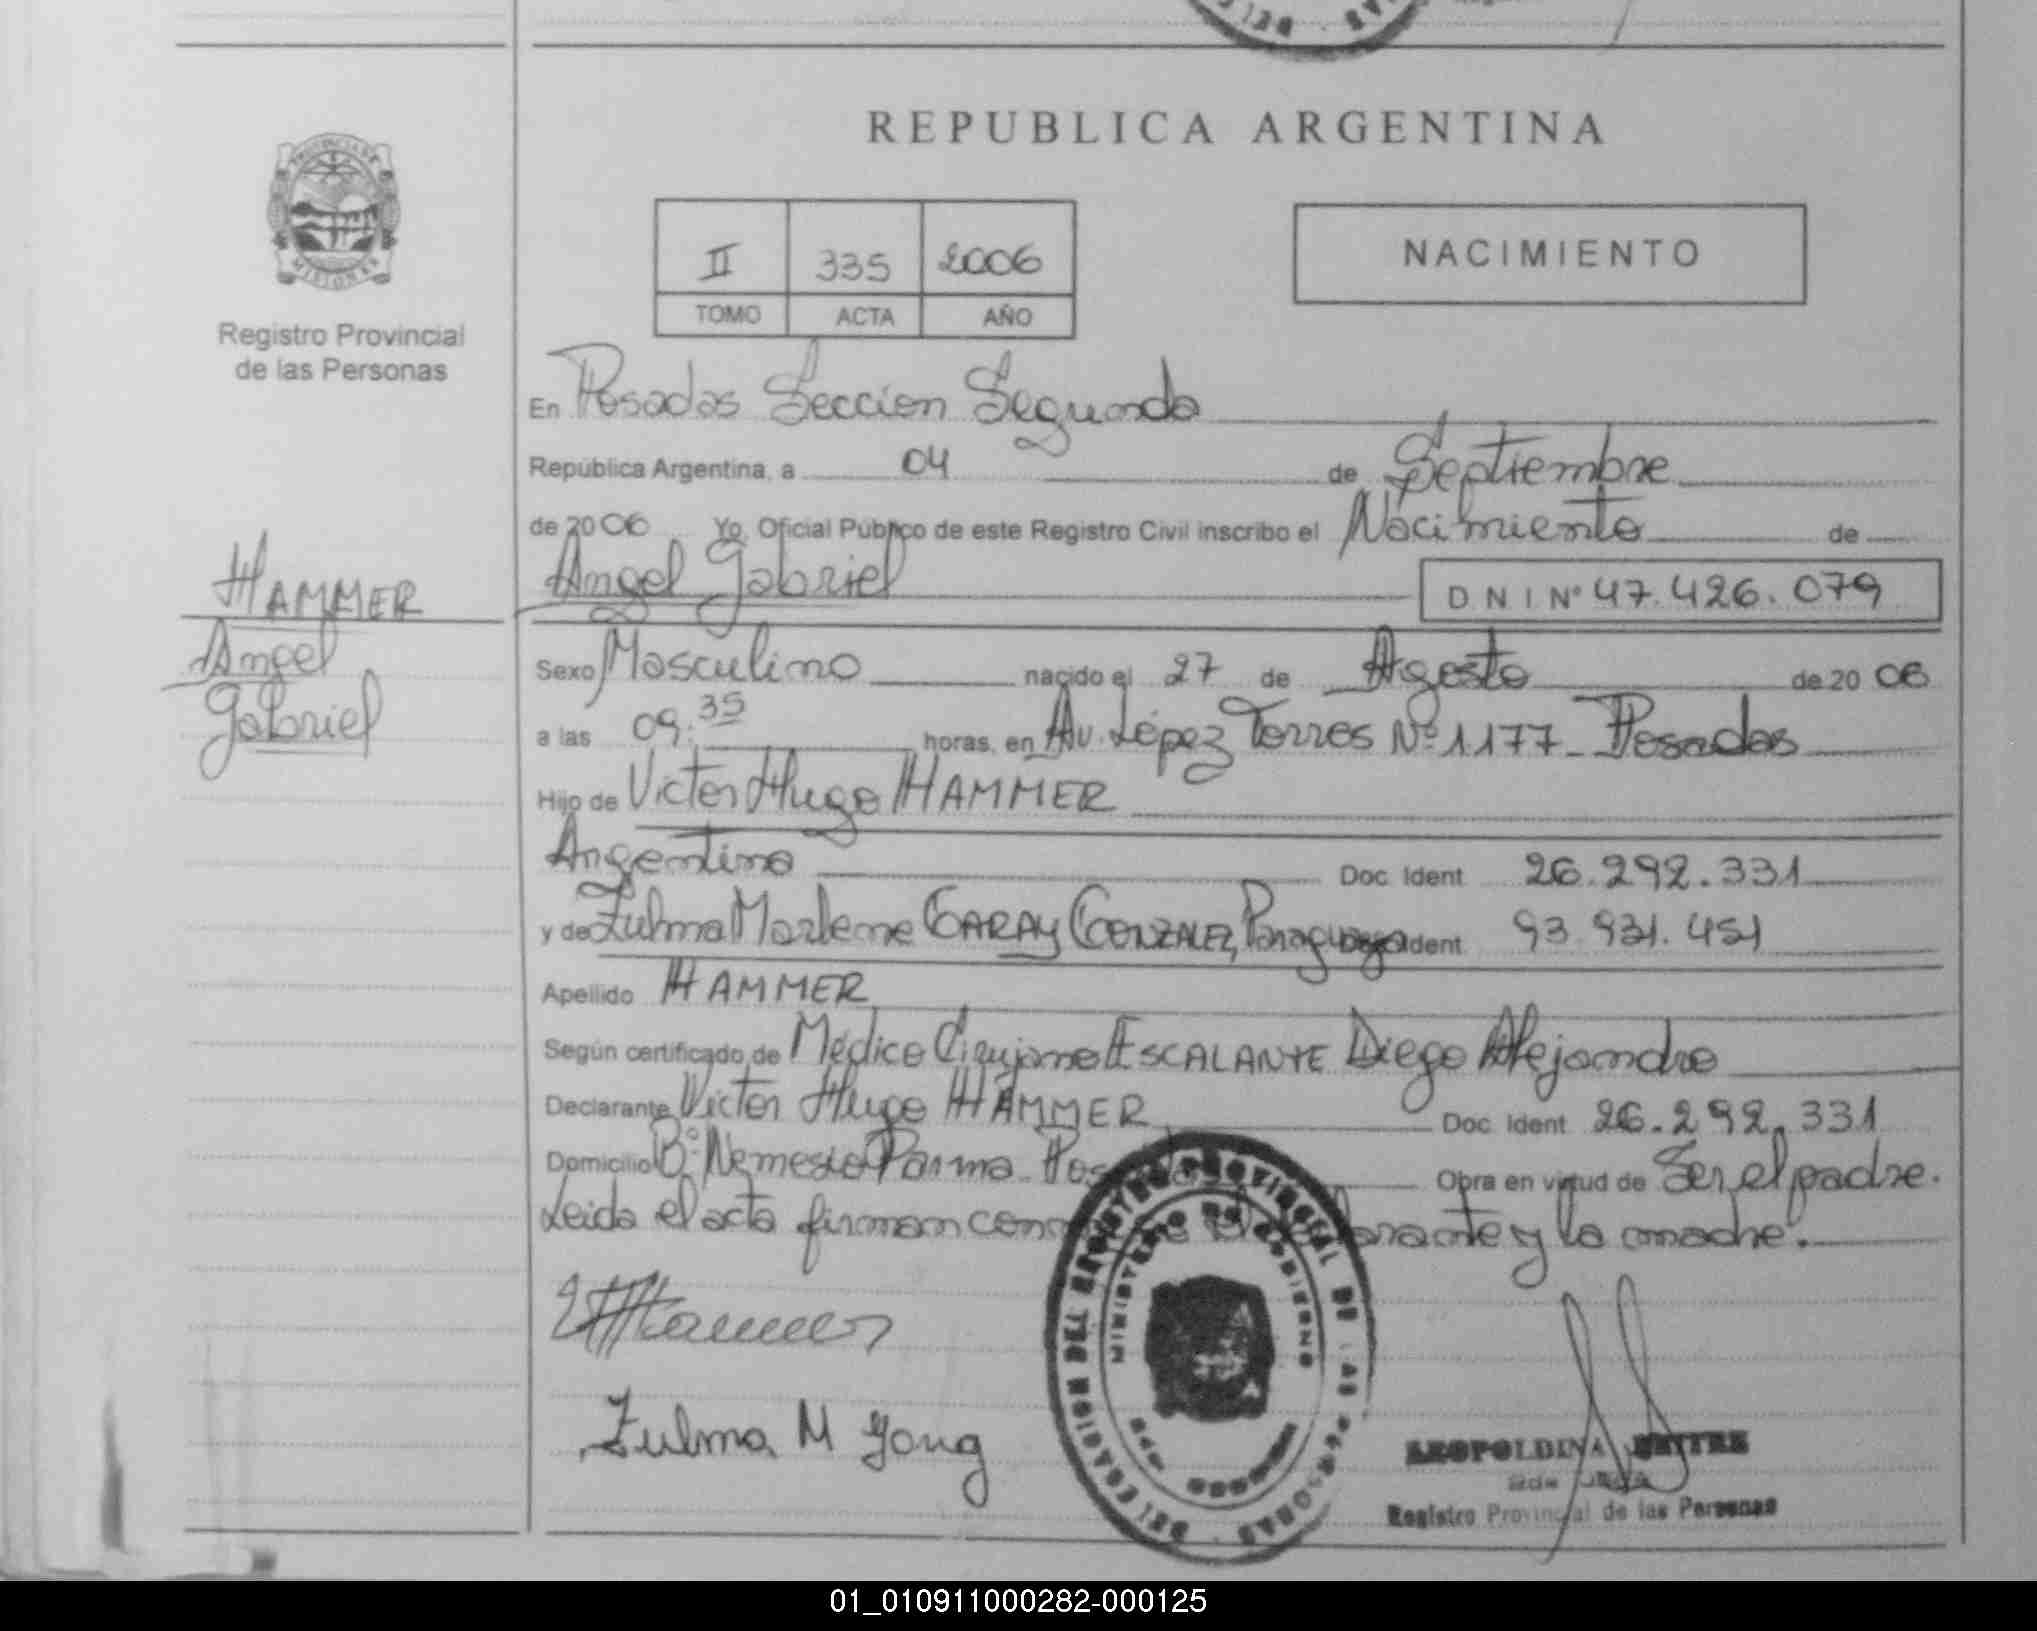 REPUBLICA ARGENTINA
PROVINCIA DE
MISIONES
Registro Provincial
de las Personas
II 335 2006
TOMO ACTA AÑO
NACIMIENTO
En Posadas Seccion Segunda
República Argentina, a 04 de Septiembre
de 2006 Yo, Oficial Público de este Registro Civil inscribo el Nacimiento de
HAMMER
Angel
Gabriel
Angel Gabriel DNI Nº 47.426.079
Sexo Masculino nacido el 27 de Agosto de 2006
a las 09:35 horas, en Av. López Torres Nº 1177 - Posadas
Hijo de Victor Hugo HAMMER
Argentino Doc. Ident. 26.292.331
y de Zulma Marlene GARAY GONZALEZ, Paraguaya Doc. Ident. 93.931.451
Apellido HAMMER
Según certificado de Médico Cirujano ESCALANTE Diego Alejandro
Declarante Victor Hugo HAMMER Doc. Ident. 26.292.331
Domicilio Bº Nemesio Parma - Obra en virtud de Ser el padre.
Leida el acta firman y la madre.
MINISTERIO DE GOBIERNO
Zulma M
LEOPOLDINA
Registro Provincial de las Personas
01_010911000282-000125